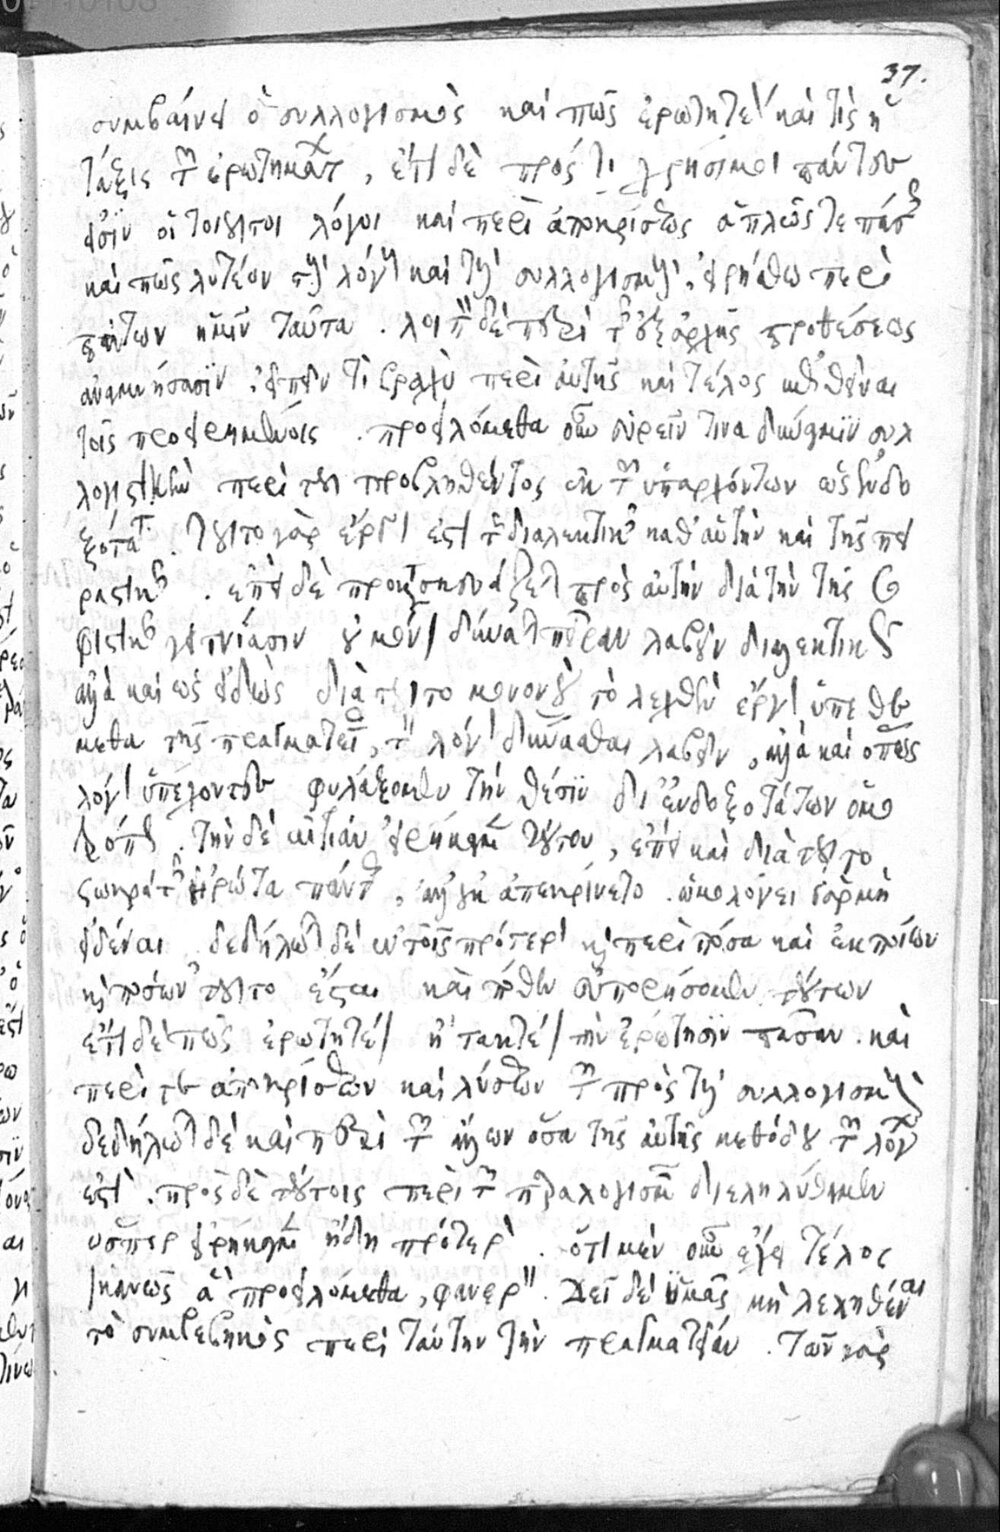 37.
συμβαίνει ὁ συλλογισμὸς καὶ πῶς ἐρωτητέον καὶ τίς ἡ
τάξις τῶν ἐρωτημάτων, ἔτι δὲ πρός τι χρήσιμοι πάντες
εἰσὶν οἱ τοιοῦτοι λόγοι καὶ περὶ ἀποκρίσεως ἁπλῶς τε πάσης
καὶ πῶς λυτέον τοὺς λόγους καὶ τοὺς συλλογισμούς. εἰρήσθω περὶ
πάντων ἡμῖν ταῦτα. λοιπὸν δὲ περὶ τῆς ἐξ ἀρχῆς προθέσεως
ἀναμνήσασιν εἰπεῖν τι βραχὺ περὶ αὐτῆς καὶ τέλος ἐπιθεῖναι
τοῖς προειρημένοις. προειλόμεθα οὖν εὑρεῖν τινα δύναμιν συλ
λογιστικὴν περὶ τοῦ προβληθέντος ἐκ τῶν ὑπαρχόντων ὡς ἐνδο
ξοτάτων. τοῦτο γὰρ ἔργον ἐστὶ τῆς διαλεκτικῆς καθ' αὑτὴν καὶ τῆς πει
ραστικῆς. ἐπεὶ δὲ προσκατασκευάζεται πρὸς αὐτὴν διὰ τὴν τῆς σο
φιστικῆς γειτνίασιν οὐ μόνον δύναται πεῖραν λαβεῖν διαλεκτικῶς
ἀλλὰ καὶ ὡς εἰδὼς διὰ τοῦτο μόνον οὐ τὸ λεχθὲν ἔργον ὑπεθέ
μεθα τῆς πραγματείας, τὸ λόγον δύνασθαι λαβεῖν, ἀλλὰ καὶ ὅπως
λόγον ὑπέχοντες φυλάξομεν τὴν θέσιν δι' ἐνδοξοτάτων ὁμο
τρόπως. τὴν δὲ αἰτίαν εἰρήκαμεν τούτου, ἐπεὶ καὶ διὰ τοῦτο
Σωκράτης ἠρώτα πάντας, ἀλλ' οὐκ ἀπεκρίνετο. ὡμολόγει γὰρ μὴ
εἰδέναι. δεδήλωται δὲ ἐν τοῖς πρότερον καὶ περὶ πόσα καὶ ἐκ ποίων
καὶ πόσων τοῦτο ἔσται καὶ πόθεν εὐπορήσομεν τούτων
ἔτι δὲ πῶς ἐρωτητέον ἢ τακτέον τὴν ἐρώτησιν πᾶσαν. καὶ
περὶ τε ἀποκρίσεων καὶ λύσεων τῶν πρὸς τοὺς συλλογισμούς
δεδήλωται δὲ καὶ περὶ τῶν ἄλλων ὅσα τῆς αὐτῆς μεθόδου τῶν λόγων
ἐστὶ. πρὸς δὲ τούτοις περὶ τῶν παραλογισμῶν διεληλύθαμεν
ὥσπερ εἰρήκαμεν ἤδη πρότερον. ὅτι μὲν οὖν ἔχει τέλος
ἱκανῶς ἃ προειλόμεθα, φανερόν. Δεῖ δὲ ὑμᾶς μὴ λεληθέναι
τὸ συμβεβηκὸς περὶ ταύτην τὴν πραγματείαν. τῶν γὰρ